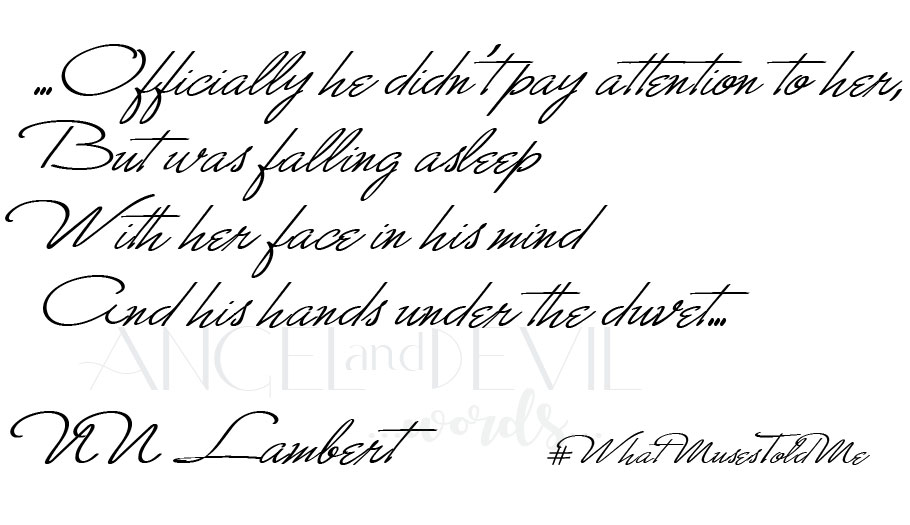 ...Officially he didn't pay attention to her,
But was falling asleep
With her face in his mind
And his hands under the duvet...
ANGEL and DEVIL
...words...
NN Lambert
#WhatMusesToldMe